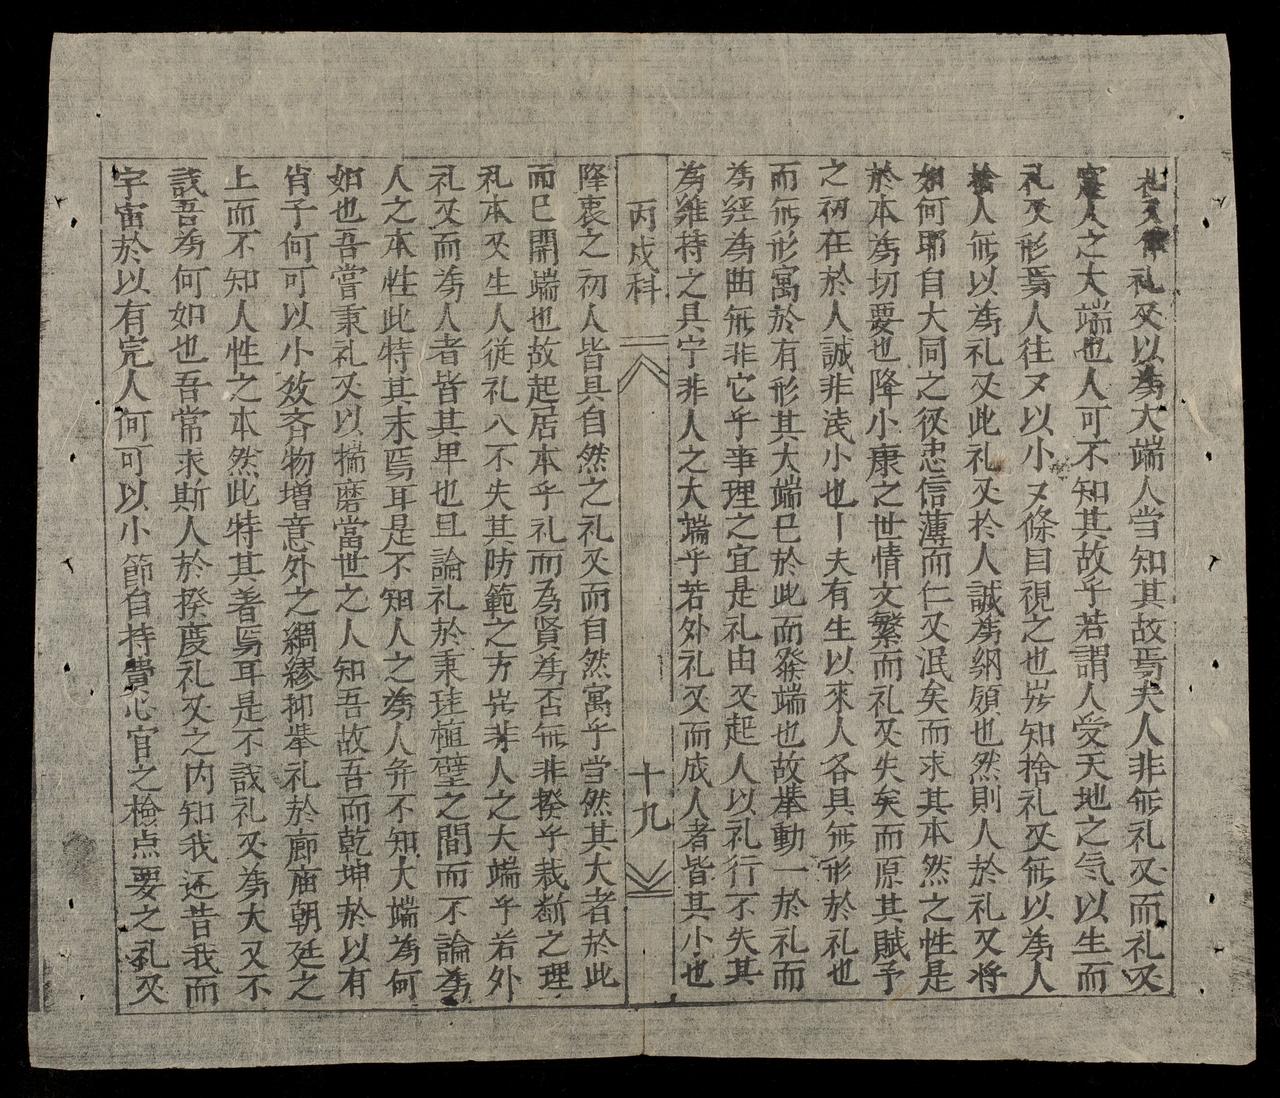 礼㕛以爲大端人当知其故焉夫人非無礼㕛而礼㕛
寔人之大端也人可不知其故乎若謂人受天地之気以生而
礼㕛形焉人往又以小又條目視之也岂知捨礼㕛無以爲人
捨人無以爲礼㕛此礼㕛扵人誠爲纲領也然則人於礼㕛将
如何耶自大同之後忠信薄而仁义泯矣而求其本然之性是
於本爲切要也降小康之世情文繁而礼㕛失矣而原其賦予
之初在於人誠非浅小也丨夫有生以來人各具無形於礼也
而無形寓於有形其大端已於此而發端也故举動一於礼而
爲経爲曲無非它乎事理之宜是礼由义起人以礼行不失其
爲維持之具宁非人之大端乎若外礼㕛而成人者皆其小也
丙戍科
十九
降衷之初人皆具自然之礼㕛而自然寓乎当然其大者於此
而已開端也故起居本乎礼而為賢爲否無非揆乎裁断之理
礼本㕛生人從礼入不失其防範之方岂非人之大端乎若外
礼㕛而爲人者皆其卑也且論礼於秉珪植璧之間而不論爲
人之本性此特其末焉耳是不知人之爲人并不知大端為何
如也吾嘗秉礼㕛以揣磨當世之人知吾故吾而乾坤於以有
肖子何可以小效斉物増意外之綢繆抑举礼於廊庙朝廷之
上而不知人性之本然此特其著焉耳是不識礼㕛爲大又不
識吾爲何如也吾常求斯人於揆度礼㕛之内知我还昔我而
宇宙於以有完人何可以小節自持費心官之檢点要之礼㕛